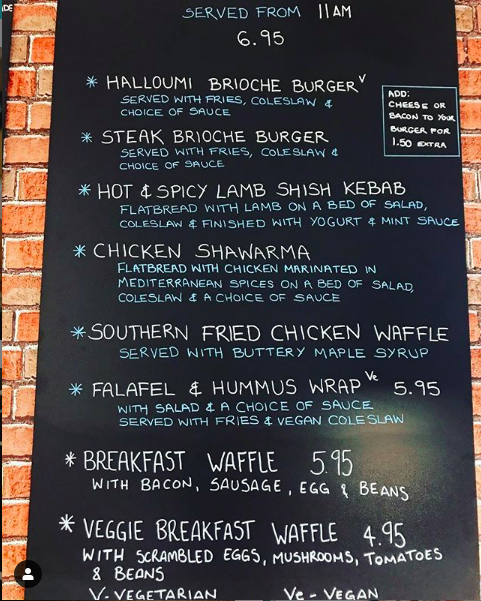 SERVED FROM 11AM
6.95
* HALLOUMI BRIOCHE BURGER V
SERVED WITH FRIES, COLESLAW &
CHOICE OF SAUCE
ADD:
CHEESE OR
BACON TO YOUR
BURGER FOR
1.50 EXTRA
* STEAK BRIOCHE BURGER
SERVED WITH FRIES, COLESLAW &
CHOICE OF SAUCE
* HOT & SPICY LAMB SHISH KEBAB
FLATBREAD WITH LAMB ON A BED OF SALAD,
COLESLAW & FINISHED WITH YOGURT & MINT SAUCE
* CHICKEN SHAWARMA
FLATBREAD WITH CHICKEN MARINATED IN
MEDITERRANEAN SPICES ON A BED OF SALAD,
COLESLAW & A CHOICE OF SAUCE
* SOUTHERN FRIED CHICKEN WAFFLE
SERVED WITH BUTTERY MAPLE SYRUP
* FALAFEL & HUMMUS WRAP Ve 5.95
WITH SALAD & A CHOICE OF SAUCE
SERVED WITH FRIES & VEGAN COLESLAW
* BREAKFAST WAFFLE 5.95
WITH BACON, SAUSAGE, EGG & BEANS
* VEGGIE BREAKFAST WAFFLE 4.95
WITH SCRAMBLED EGGS, MUSHROOMS, TOMATOES
& BEANS
V-VEGETARIAN Ve-VEGAN